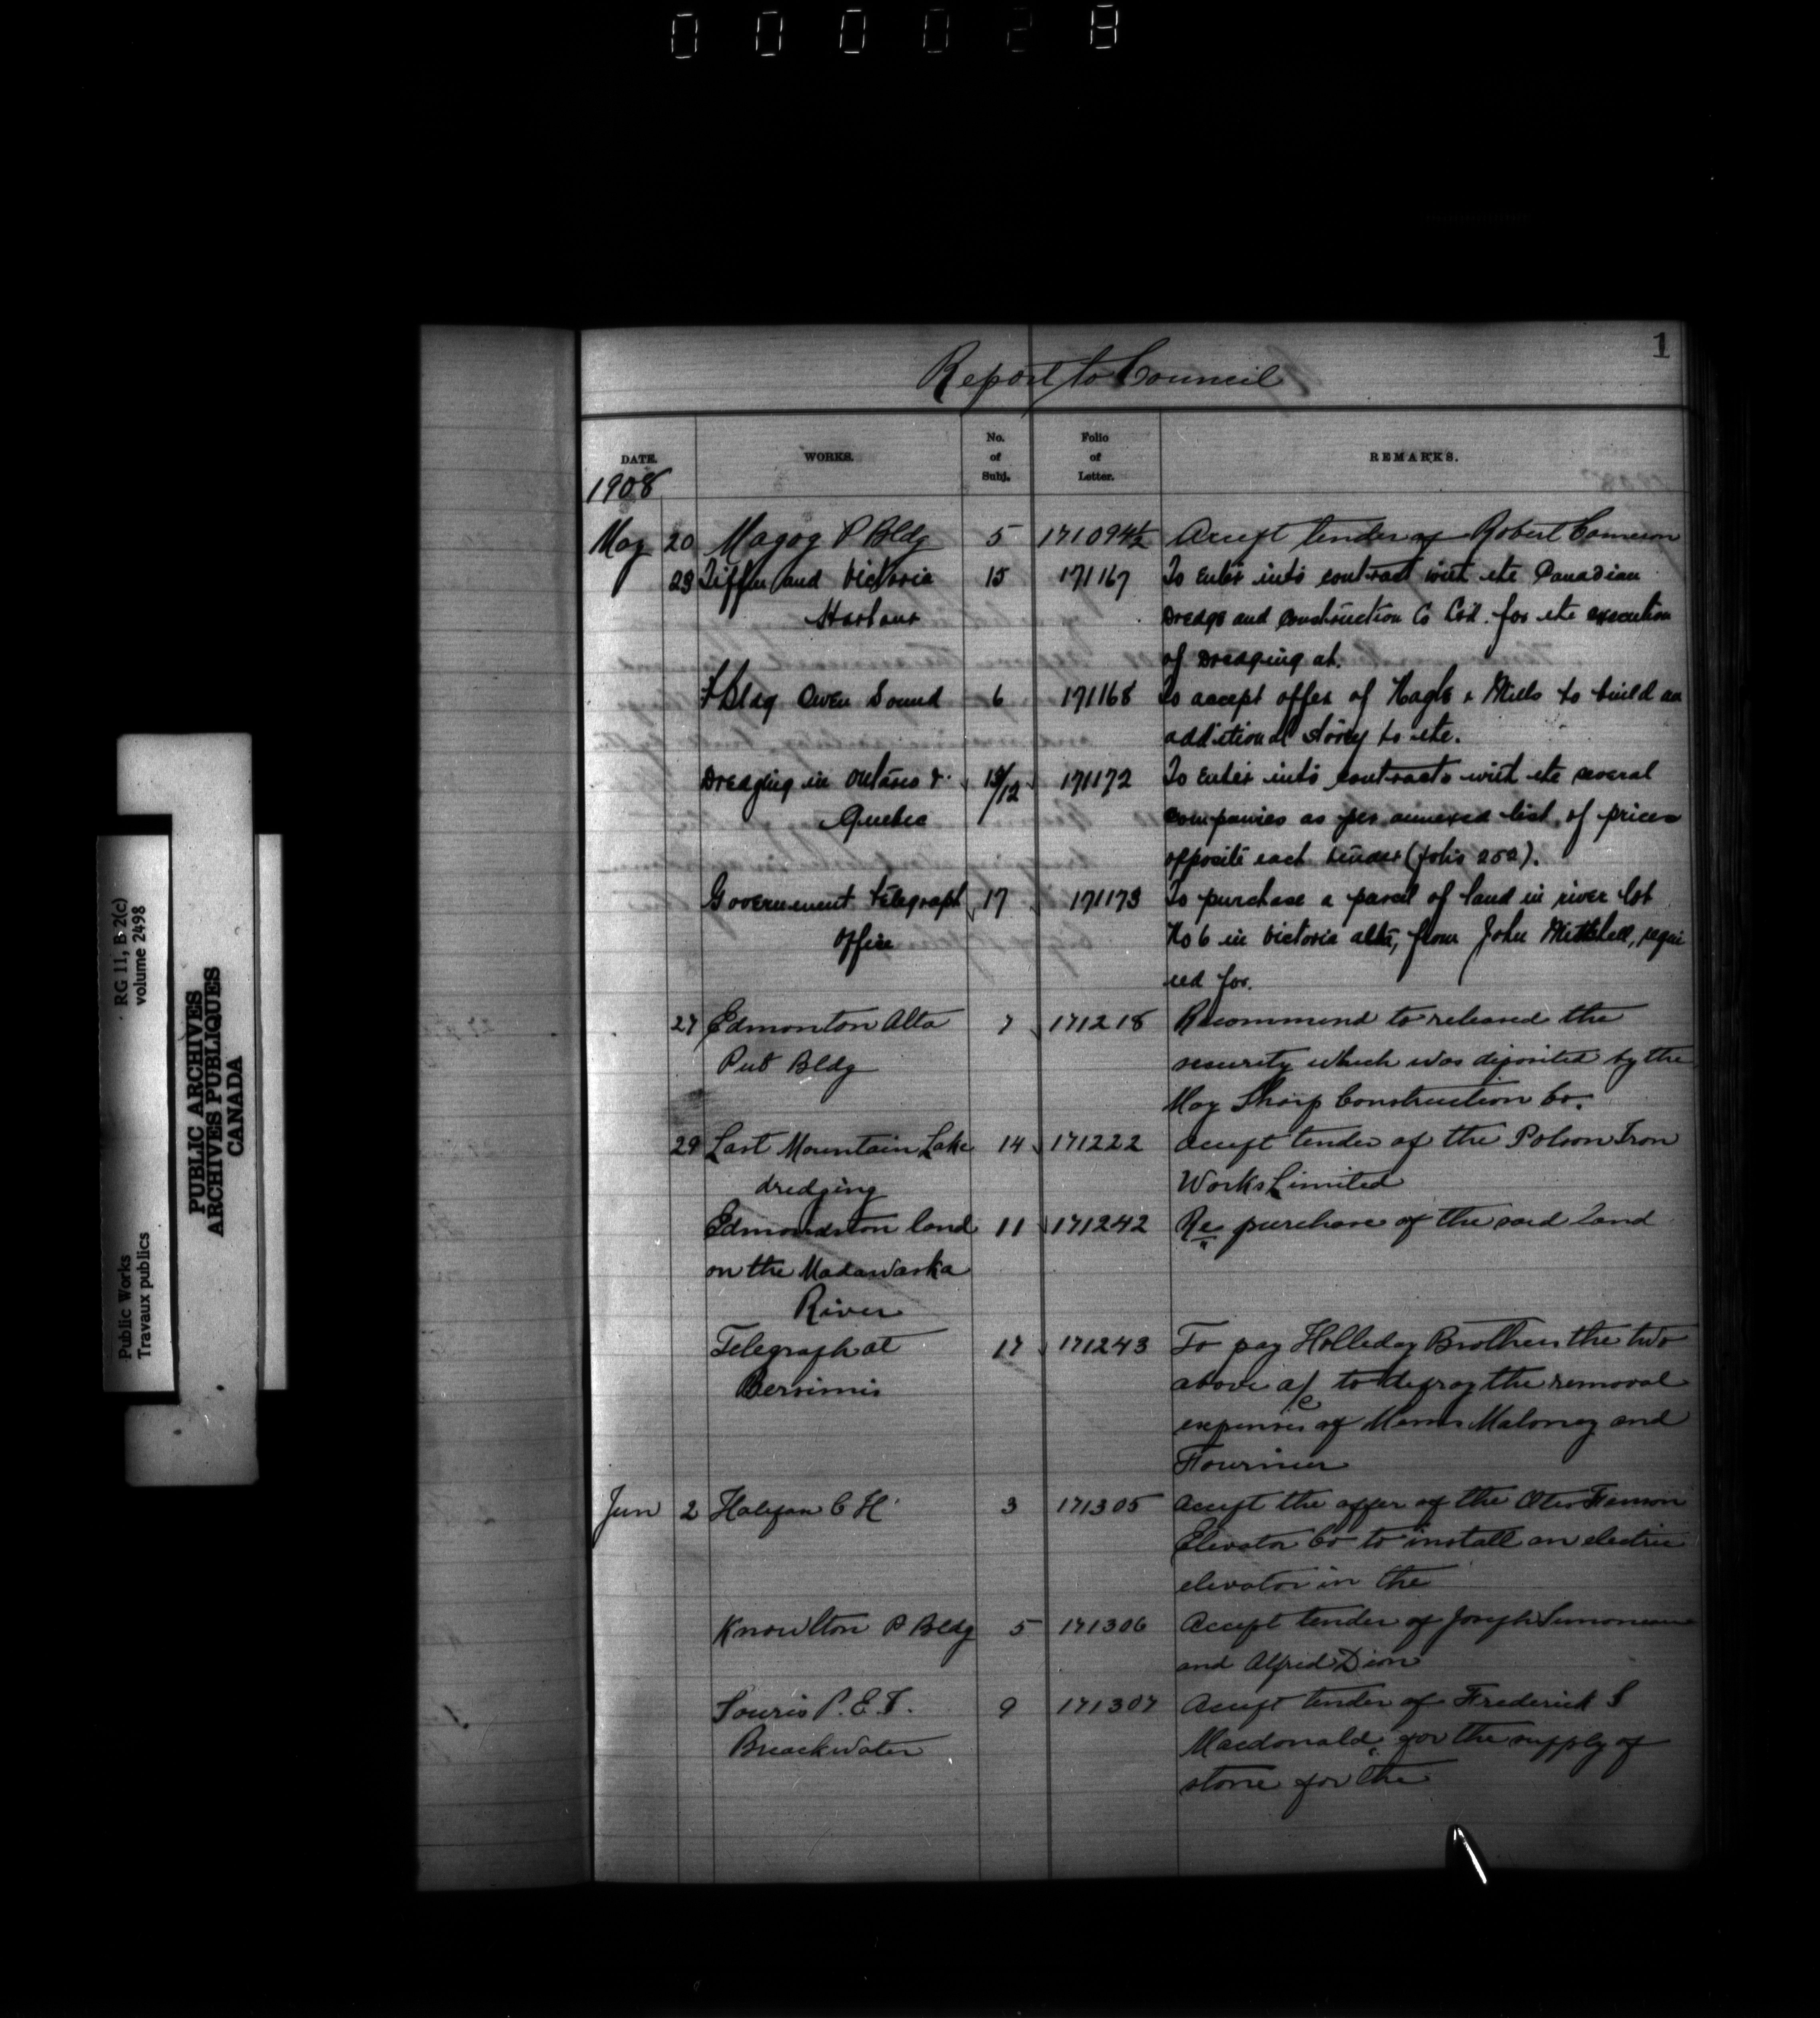 000028
1
Report to Council
DATE. WORKS. No. of Subj. Folio of Letter. REMARKS.
1908
May 20 Magog P Bldg 5 171094½ Accept tender of Robert Cameron
23 Tiffin and Victoria 15 171167 To enter into contract with the Canadian
Harbour Dredge and Construction Co Ltd. for the execution
of Dredging at.
P Bldg Owen Sound 6 171168 To accept offer of Nagle & Mills to build an
additional storey to the.
Dredging in Ontario & 15/12 171172 To enter into contracts with the several
Quebec companies as per annexed list of prices
opposite each tender (folio 252).
Government Telegraph 17 171173 To purchase a parcel of land in river lot
Office No 6 in Victoria alta, from John Mitchell, requi
red for.
27 Edmonton Alta 7 171218 Recommend to released the
Pub Bldg security which was deposited by the
May Sharp Construction Co.
29 Last Mountain Lake 14 171222 Accept tender of the Polson Iron
dredging Works Limited
Edmundston land 11 171242 Re purchase of the said land
on the Madawaska
River
Telegraph at 17 171243 To pay Holliday Brothers the two
Bersimis above a/c to defray the removal
expenses of Messrs Maloney and
Fournier
Jun 2 Halifax C H 3 171305 Accept the offer of the Otis Fensom
Elevator Co to install an electric
elevator in the
Knowlton P Bldg 5 171306 Accept tender of Joseph Simoneau
and Alfred Dion
Souris P. E. I. 9 171307 Accept tender of Frederick S
Breackwater Macdonald for the supply of
stone for the
Public Works RG 11, B 2(c)
Travaux publics volume 2498
PUBLIC ARCHIVES
ARCHIVES PUBLIQUES
CANADA